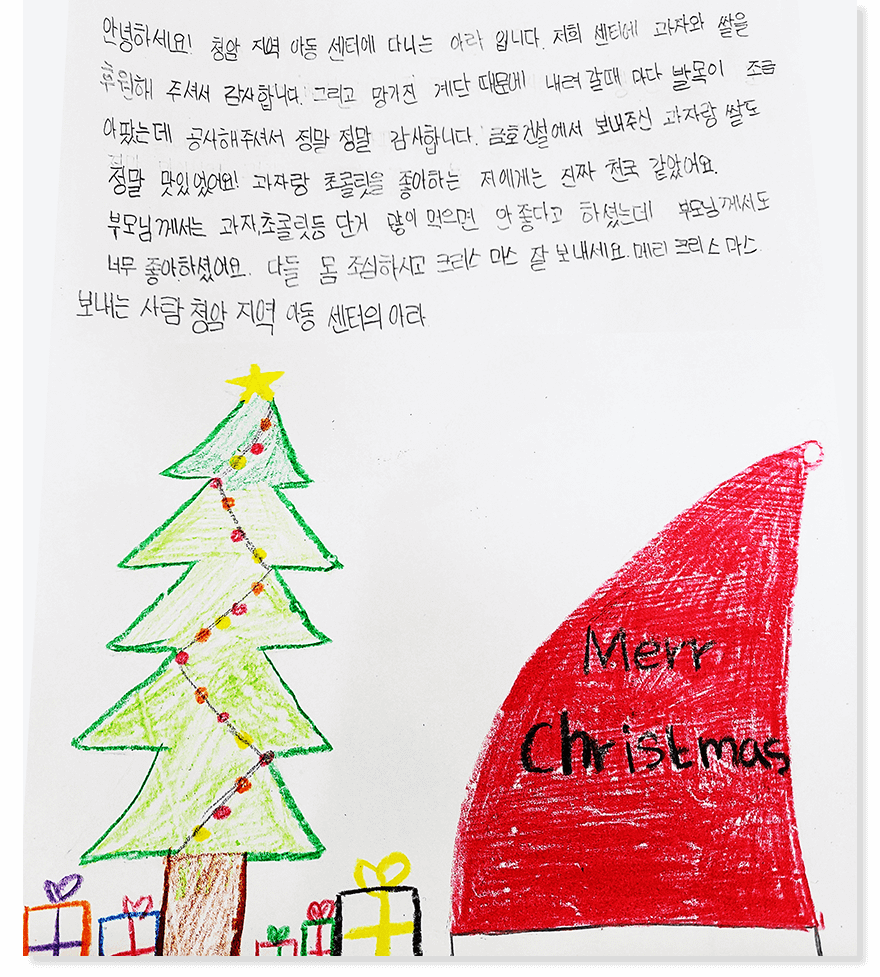 안녕하세요! 청암 지역 아동 센터에 다니는 아라 입니다. 저희 센터에 과자와 쌀을
후원해 주셔서 감사합니다. 그리고 망가진 계단 때문에 내려 갈때 마다 발목이 조금
아팠는데 공사해주셔서 정말 정말 감사합니다. 금호건설에서 보내주신 과자랑 쌀도
정말 맛있었어요! 과자랑 초콜릿을 좋아하는 저에게는 진짜 천국 같았어요.
부모님께서는 과자,초콜릿등 단거 많이 먹으면 안좋다고 하셨는데 부모님께서도
너무 좋아하셨어요. 다들 몸 조심하시고 크리스 마스 잘 보내세요. 메리 크리스 마스.
보내는 사람 청암 지역 아동 센터의 아라
Merr
Christmas